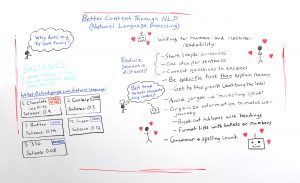 Better Content Through NLP
(Natural Language Processing)
Why does my TV look funny?
SALIENCE
https://cloud.google.com/natural-language/
1. Chocolate
Salience: 0.4
2. Cookies
Salience: 0.19
3. Butter
Salience: 0.14
4. Sugar
Salience: 0.12
5. 350
Salience: 0.08
Reduce
semantic
distance!
Best temp
to bake chocolate
chip cookies?
Writing for human- and machine-
readability:
- Short, simple sentences
- One idea per sentence
- Connect questions to answers
- Be specific first then explain nuances
- Get to the point
- Avoid jargon and "marketing speak"
- Organize information to match user
journey
- Break out subtopics with headings
- Format lists with bullets or numbers
- Grammar & spelling count